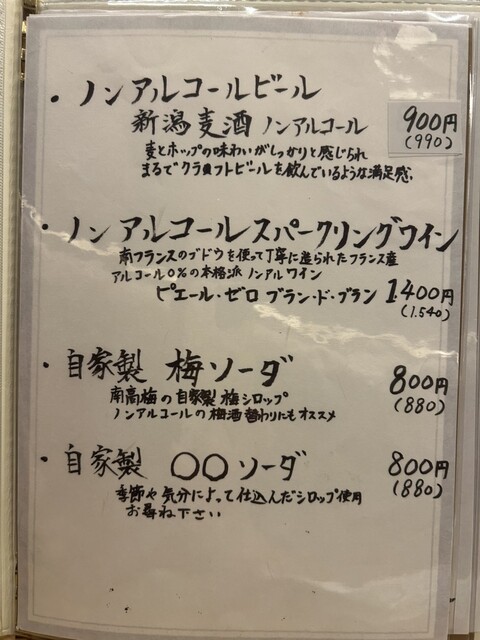 ・ノンアルコールビール
新潟麦酒 ノンアルコール 900円
(990)
麦とホップの味わいがしっかりと感じられ
まるでクラフトビールを飲んでいるような満足感.
・ノンアルコールスパークリングワイン
南フランスのブドウを使って丁寧に造られたフランス産
アルコール0%の本格派 ノンアルワイン
ピエール・ゼロ ブラン・ド・ブラン 1.400円
(1.540)
・自家製 梅ソーダ 800円
(880)
南高梅の自家製梅シロップ
ノンアルコールの梅酒替わりにもオススメ
・自家製 ○○ソーダ 800円
(880)
季節や気分によって仕込んだシロップ使用
お尋ね下さい